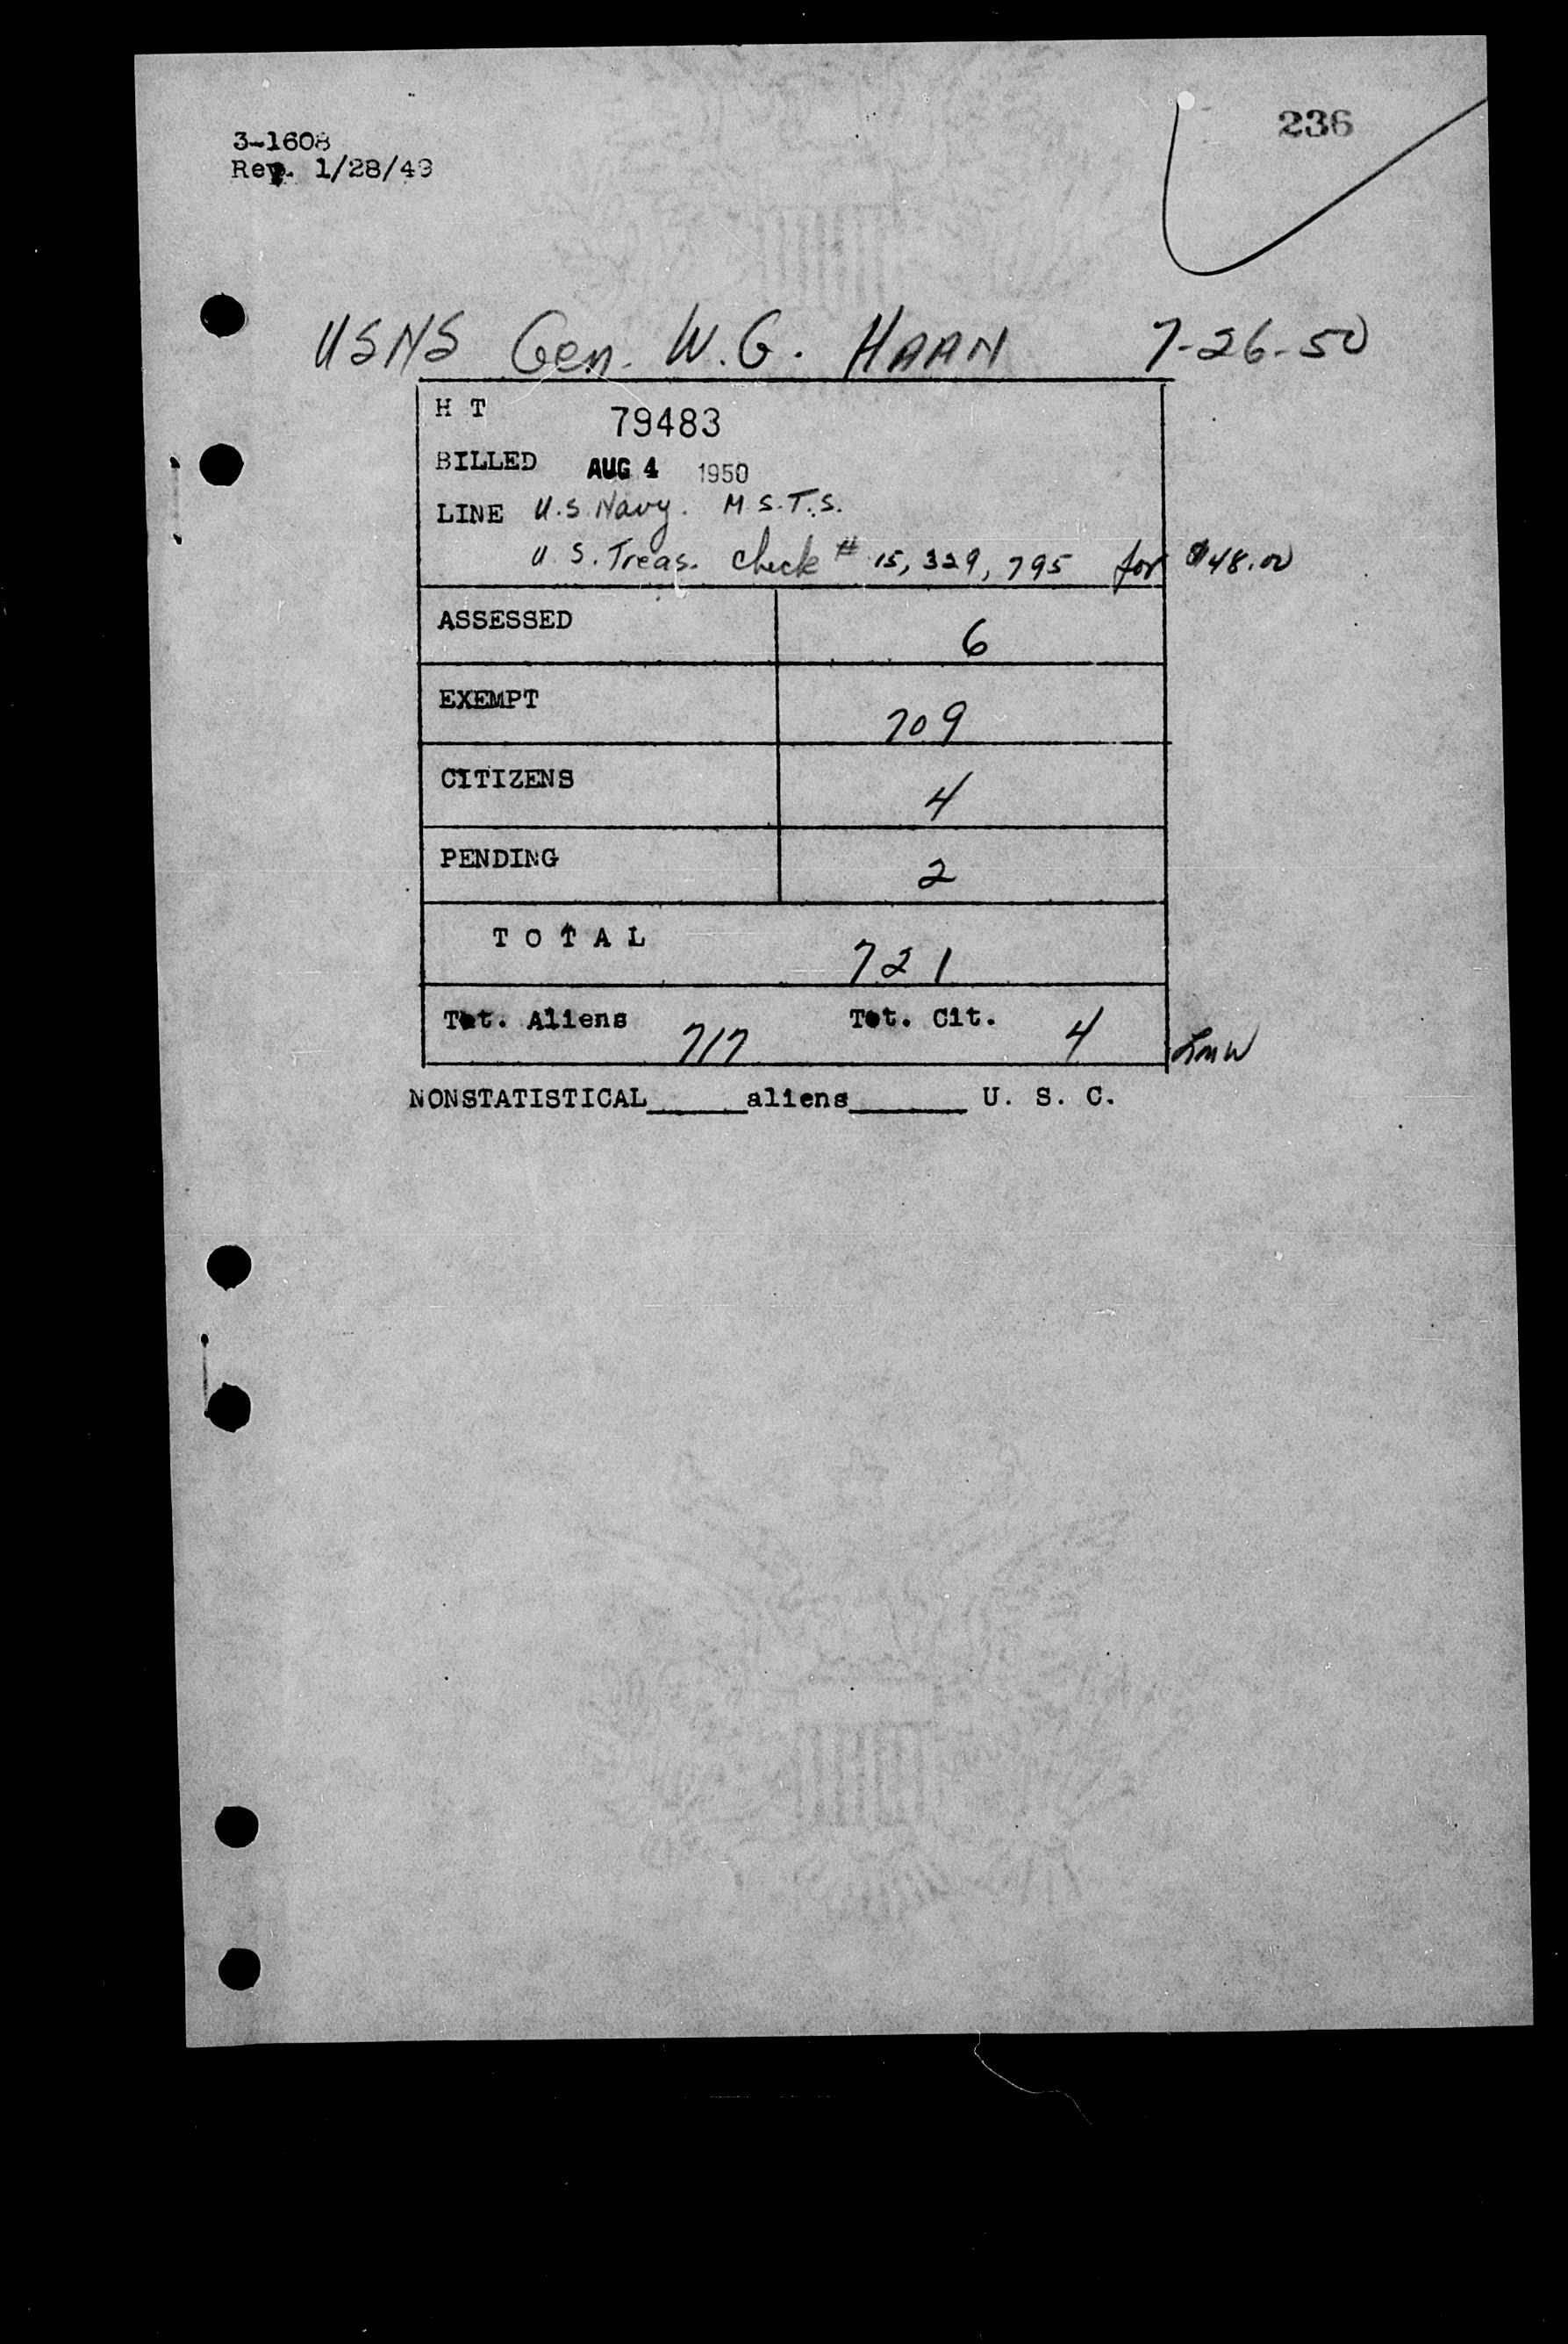 236
3-1608
Rev. 1/28/49
USNS Gen. W. G. HAAN 7-26-50
H T 79483
BILLED AUG 4 1950
LINE U.S. Navy. M.S.T.S.
U.S. Treas. check # 15,329,795 for $48.00
ASSESSED 6
EXEMPT 709
CITIZENS 4
PENDING 2
T O T A L 721
Tot. Aliens 717 Tot. Cit. 4
NONSTATISTICAL_____aliens______ U. S. C.